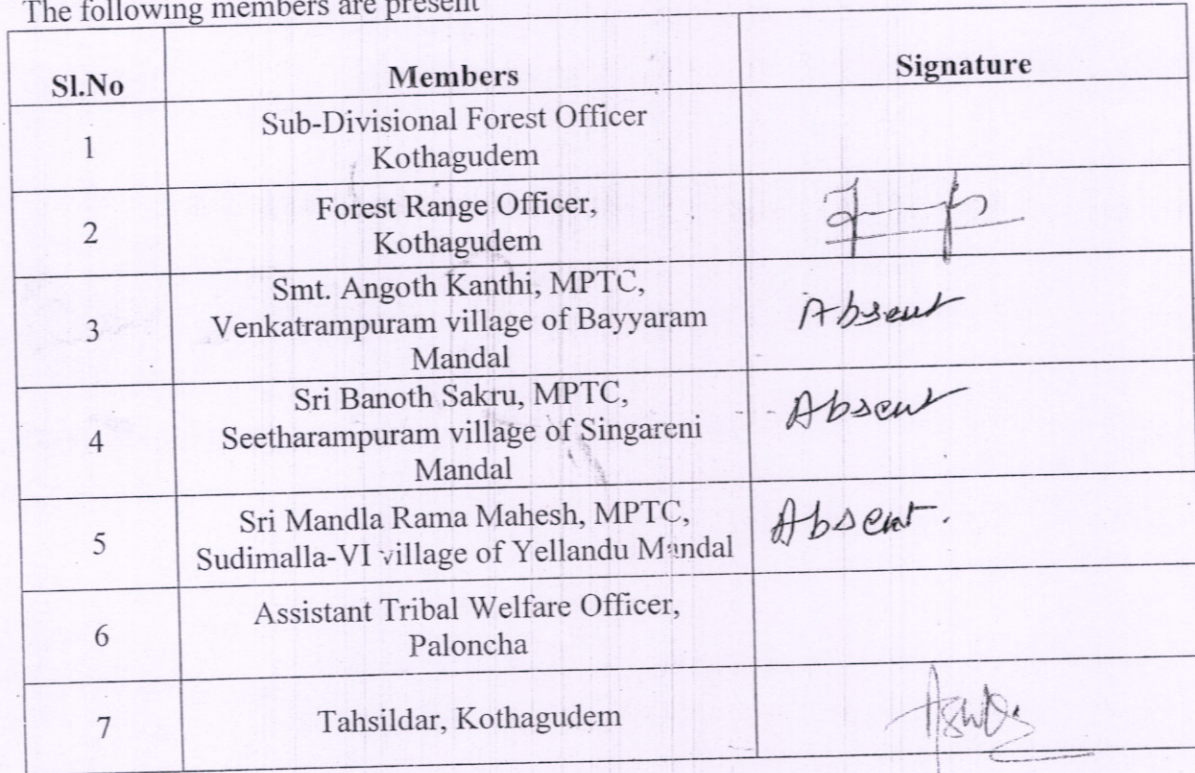 The following members are present
Sl.No Members Signature
1 Sub-Divisional Forest Officer
Kothagudem
2 Forest Range Officer,
Kothagudem
3 Smt. Angoth Kanthi, MPTC,
Venkatrampuram village of Bayyaram
Mandal
Absent
4 Sri Banoth Sakru, MPTC,
Seetharampuram village of Singareni
Mandal
Absent
5 Sri Mandla Rama Mahesh, MPTC,
Sudimalla-VI village of Yellandu Mandal
Absent.
6 Assistant Tribal Welfare Officer,
Paloncha
7 Tahsildar, Kothagudem